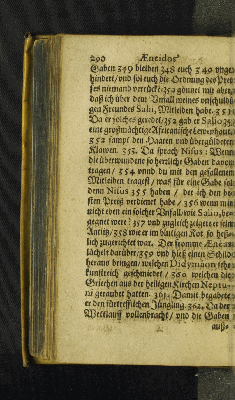 290 Æneidos
Gaben 349 bleiben 348 euch 349 unge-
hindert/ und sol euch die Ordnung des Prei-
ses niemand verrückt: 350 gönnet mir aber,
daß ich über dem Unfall meines unschuldi-
gen Freundes Salii, Mitleiden habe. 351
Da er solches geredet/ 352 gab er Salio 353
eine großmächtige Africanische Lewenhaut/
352 sampt den Haaren und vergüldeten
Klawen. 353. Da sprach Nisus: Wenn
die überwundene so herrliche Gaben davon
tragen/ 354 unnd du mit den gefallenen
Mitleiden tragest/ was für eine Gabe sol
denn Nisus 355 haben / der ich den be-
sten Preiß verdienet habe / 356 wenn mir
nicht eben ein solcher Unfall/ wie Salio, be-
gegnet were? 357 und zugleich zeigete er sein
Antlitz/ 358 wie er im blutigen Kot so heß-
lich zugerichtet war. Der fromme Æneas
lächelt darüber/ 359 und hieß einen Schild
heraus bringen/ welchen Didymaon sehr
kunstreich geschmiedet / 360 welchen die
Griechen aus der heiligen Kirchen Neptu-
ni geraubet hatten. 361. Damit begabete
er den fürtrefflichen Jüngling. 362. Da der
Wettlauff vollenbracht/ und die Gaben
auß-